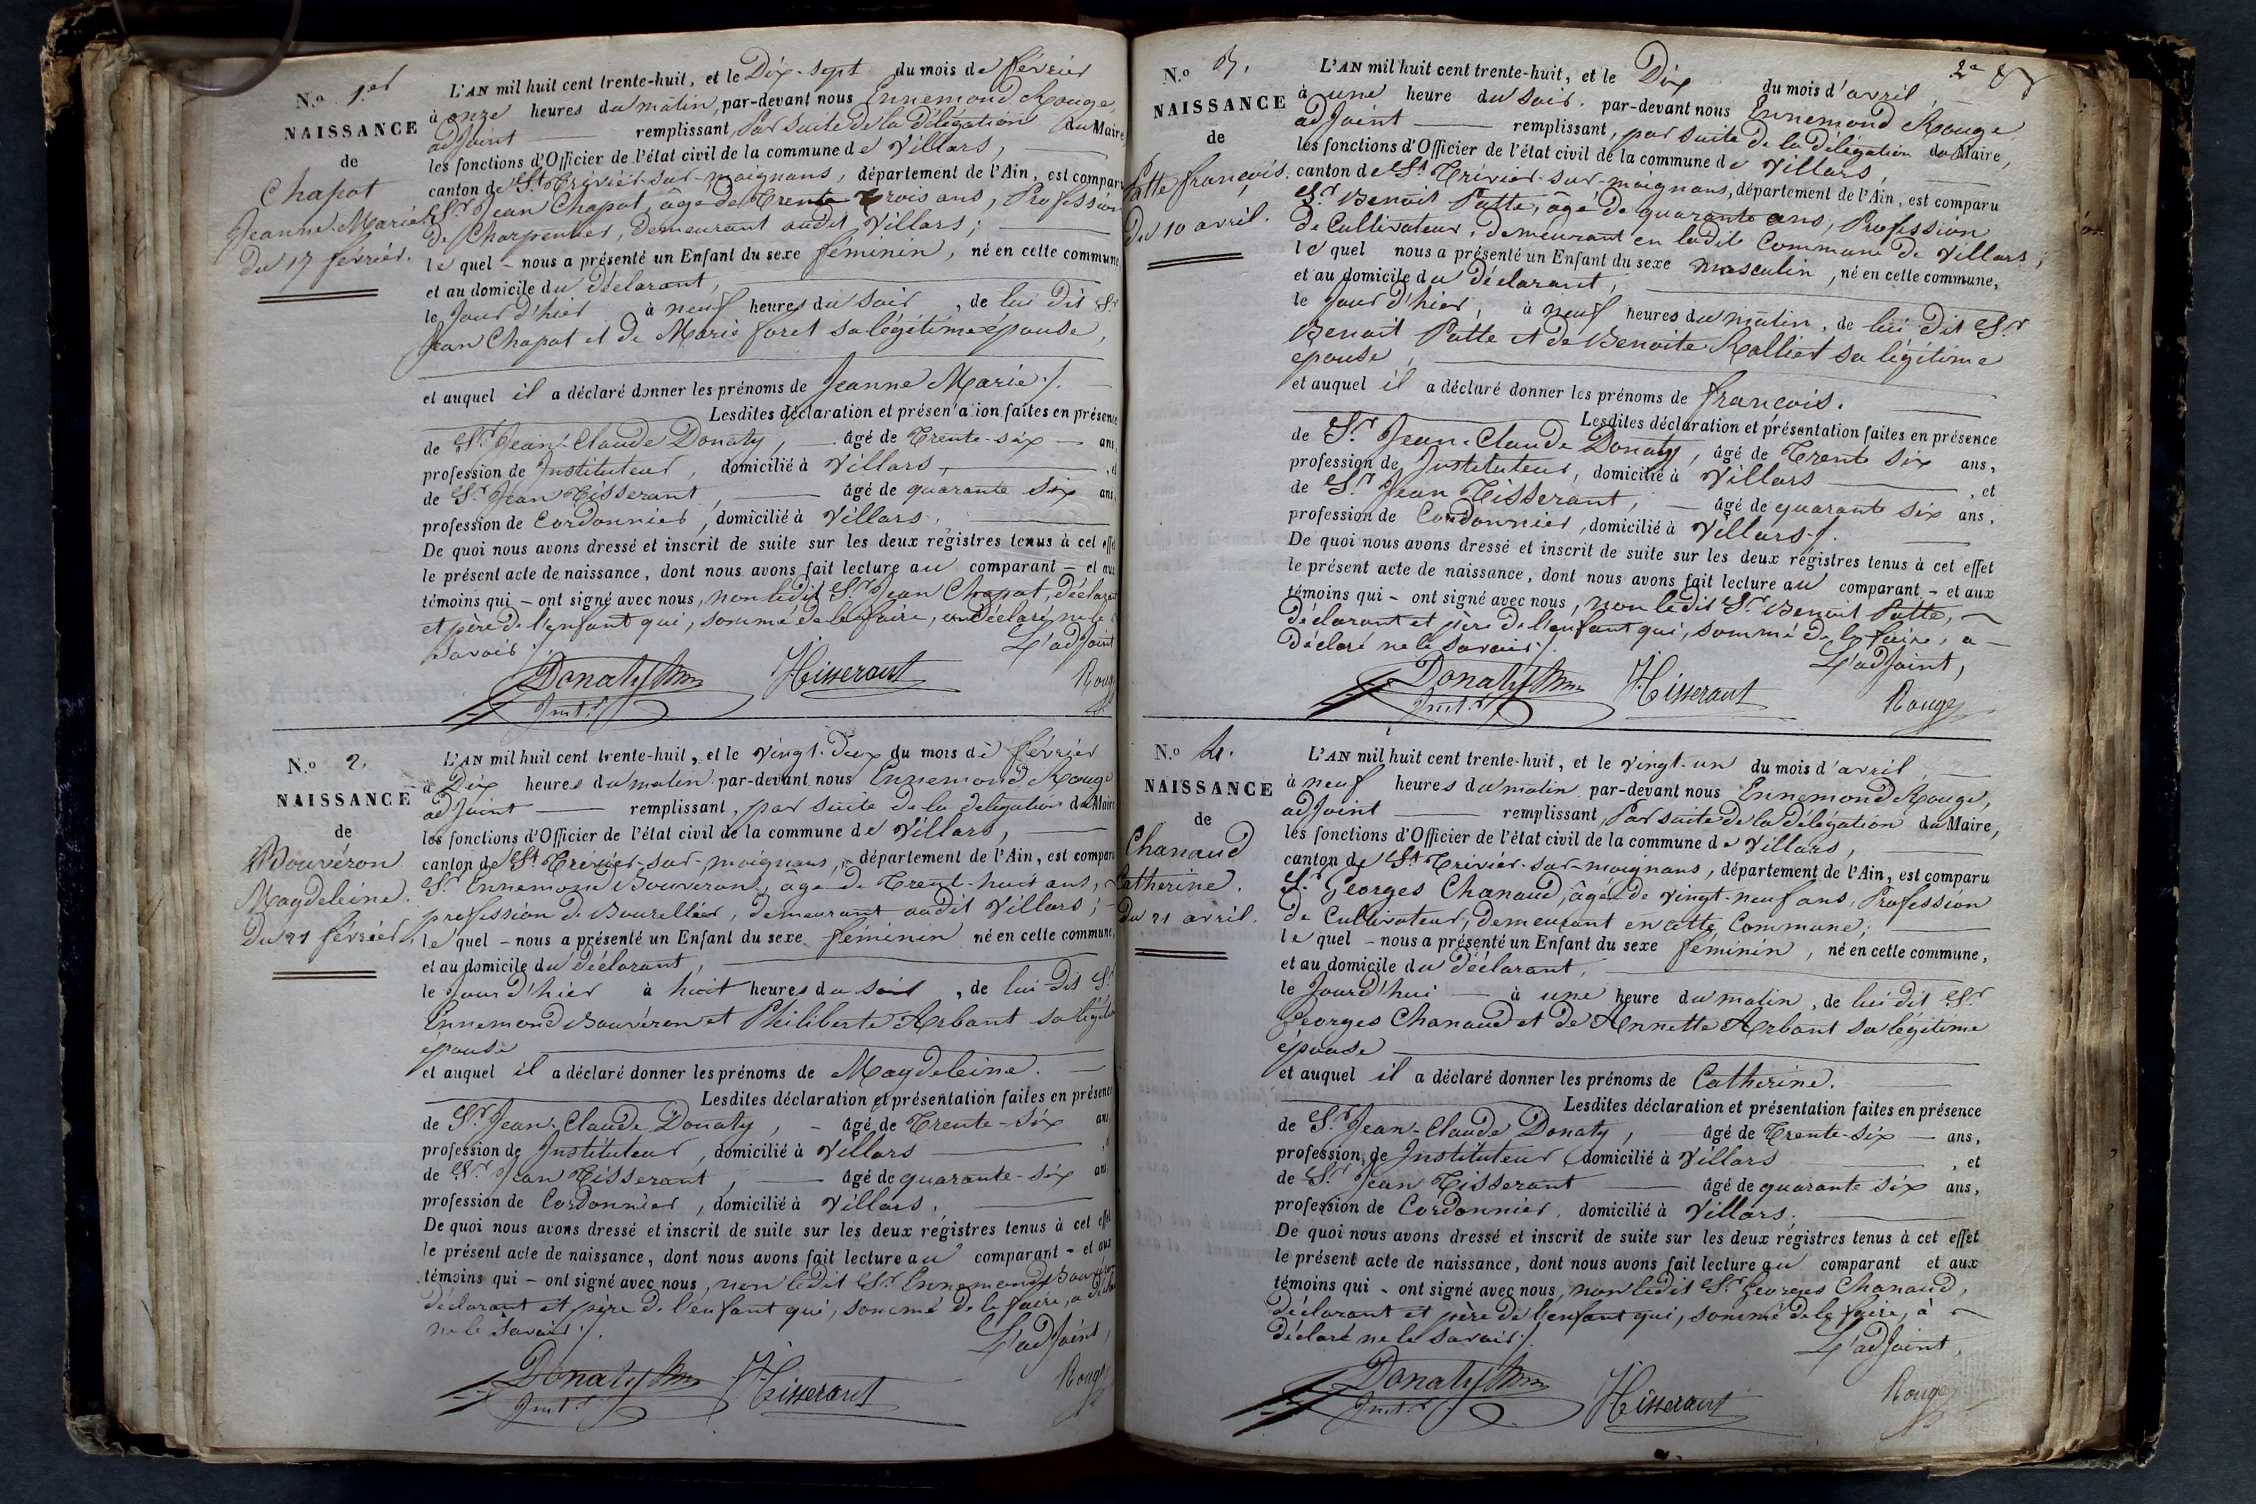 N.o 1.er
NAISSANCE
de
Chapot
Jeanne-Marie
du 17 février.
L'AN mil huit cent trente-huit, et le Dix-sept du mois de février
à onze heures du matin, par-devant nous Ennemond Rouge,
adjoint remplissant, par suite de la délégation du Maire
les fonctions d'Officier de l'état civil de la commune de Villars,
canton de St Trivier-sur-moignans, département de l'Ain, est comparu
Sr. Jean Chapot, âgé de Trente Trois ans, Profession
de Charpentier, demeurant audit Villars;
lequel - nous a présenté un Enfant du sexe féminin, né en cette commune
et au domicile du déclarant,
le Jour d'hier à neuf heures du soir, de lui dit Sr
Jean Chapot et de Marie foret sa légitime épouse,
et auquel il a déclaré donner les prénoms de Jeanne Marie ./.
Lesdites déclaration et présen'a ion faites en présence
de Sr. Jean-Claude Donaty, âgé de Trente-six ans,
profession de Instituteur domicilié à Villars, et
de Sr Jean Tisserant, âgé de quarante six ans,
profession de Cordonnier, domicilié à Villars.
De quoi nous avons dressé et inscrit de suite sur les deux régistres tenus à cet effet
le présent acte de naissance, dont nous avons fait lecture au comparant - et aux
témoins qui - ont signé avec nous, non ledit Sr. Jean Chapot, déclarant
et père de l'enfant qui, sommé de le faire, a déclaré ne le
savoir ./.
L'adjoint
Donaty
Inst.r
JTisserant
Rouge
N.o 2.
NAISSANCE
de
Bouvéron
Magdeleine.
du 21 février.
L'AN mil huit cent trente-huit, et le vingt-deux du mois de février
à Dix heures du matin par-devant nous Ennemond Rouge
adjoint remplissant, par suite de la délégation du Maire
les fonctions d'Officier de l'état civil de la commune de Villars,
canton de St Trivier-sur-moignans, département de l'Ain, est comparu
Sr Ennemond Bouveron, âgé de Trent-huit ans,
profession de Bourellier, demeurant audit Villars;
lequel - nous a présenté un Enfant du sexe féminin né en cette commune,
et au domicile du déclarant,
le Jour d'hier à huit heures du soir, de lui dit Sr
Ennemond Bouvéron et Philiberte Arbant sa légitime
épouse
et auquel il a déclaré donner les prénoms de Magdeleine.
Lesdites déclaration et présentation faites en présence
de Sr. Jean-Claude Donaty, - âgé de Trente-six ans
profession de Instituteur, domicilié à Villars
de Sr Jean Tisserant, âgé de quarante-six ans
profession de Cordonnier, domicilié à Villars.
De quoi nous avons dressé et inscrit de suite sur les deux régistres tenus à cet effet
le présent acte de naissance, dont nous avons fait lecture au comparant - et aux
témoins qui - ont signé avec nous, non ledit Sr. Ennemond Bouveron
déclarant et père de l'enfant qui, sommé de le faire, a déclaré
ne le savoir ./.
L'adjoint,
Donaty
Inst.r
JTisserant
Rouge
2e
N.o 3.
NAISSANCE
de
Patte françois.
du 10 avril.
L'AN mil huit cent trente-huit, et le Dix du mois d'avril,
à une heure du soir. par-devant nous Ennemond Rouge
adjoint remplissant, par suite de la délégation du Maire,
les fonctions d'Officier de l'état civil de la commune de Villars,
canton de St Trivier-sur-moignans, département de l'Ain, est comparu
Sr Benoit Patte, agé de quarante ans, Profession
de Cultivateur, demeurant en ladite Commune de Villars;
lequel nous a présenté un Enfant du sexe masculin, né en cette commune,
et au domicile du déclarant,
le Jour d'hier, à neuf heures du matin, de lui dit Sr
Benoit Patte et de Benoite Rolliet sa légitime
epouse,
et auquel il a déclaré donner les prénoms de françois.
Lesdites déclaration et présentation faites en présence
de Sr. Jean-Claude Donaty, âgé de Trente six ans,
profession de Instituteur, domicilié à Villars, et
de Sr Jean Tisserant, âgé de quarante six ans,
profession de Cordonnier, domicilié à Villars ./.
De quoi nous avons dressé et inscrit de suite sur les deux régistres tenus à cet effet
le présent acte de naissance, dont nous avons fait lecture au comparant - et aux
témoins qui - ont signé avec nous, non ledit Sr. Benoit Patte,
déclarant et père de l'enfant qui, sommé de le faire, a
déclaré ne le savoir ./.
L'adjoint,
Donaty
Inst.r
JTisserant
Rouge
N.o 4.
NAISSANCE
de
Chanaud
Catherine.
du 21 avril.
L'AN mil huit cent trente-huit, et le vingt-un du mois d'avril,
à neuf heures du matin par-devant nous Ennemond Rouge,
adjoint remplissant, Par suite de la délégation du Maire,
les fonctions d'Officier de l'état civil de la commune de Villars,
canton de St Trivier-sur-moignans, département de l'Ain, est comparu
Sr Georges Chanaud, âgé de vingt-neuf ans, Profession
de Cultivateur, demeurant en cette Commune;
lequel - nous a présenté un Enfant du sexe féminin, né en cette commune,
et au domicile du déclarant,
le Jourd'hui à une heure du matin, de lui dit Sr
Georges Chanaud et de Annette Arbant sa légitime
épouse
et auquel il a déclaré donner les prénoms de Catherine.
Lesdites déclaration et présentation faites en présence
de Sr. Jean-Claude Donaty, âgé de Trente-six ans,
profession de Instituteur domicilié à Villars, et
de Sr. Jean Tisserant âgé de quarante six ans,
profession de Cordonnier, domicilié à Villars.
De quoi nous avons dressé et inscrit de suite sur les deux régistres tenus à cet effet
le présent acte de naissance, dont nous avons fait lecture au comparant et aux
témoins qui - ont signé avec nous, non ledit Sr Georges Chanaud,
déclarant et père de l'enfant qui, sommé de le faire, à
déclaré ne le savoir ./.
L'adjoint,
Donaty
Inst.r
JTisserant
Rouge